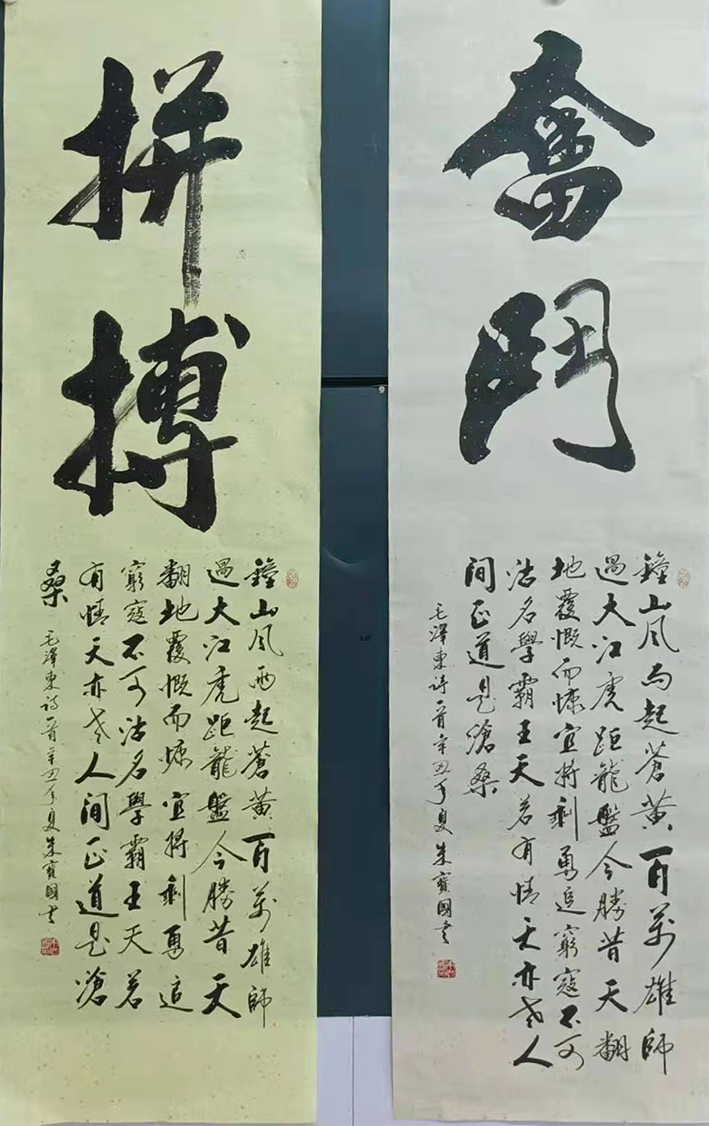 奮鬥
鐘山風雨起蒼黃百萬雄師
過大江虎距龍盤今勝昔天翻
地覆慨而慷宜將剩勇追窮寇不可
沽名學霸王天若有情天亦老人
間正道是滄桑
毛澤東詩一首辛丑年夏朱寶國書
拼搏
鐘山風雨起蒼黃百萬雄師
過大江虎距龍盤今勝昔天
翻地覆慨而慷宜將剩勇追
窮寇不可沽名學霸王天若
有情天亦老人間正道是滄
桑
毛澤東詩一首辛丑年夏朱寶國書